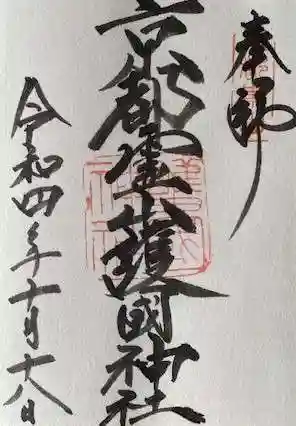 奉拝
京都霊山護國神社
令和四年十月十八日